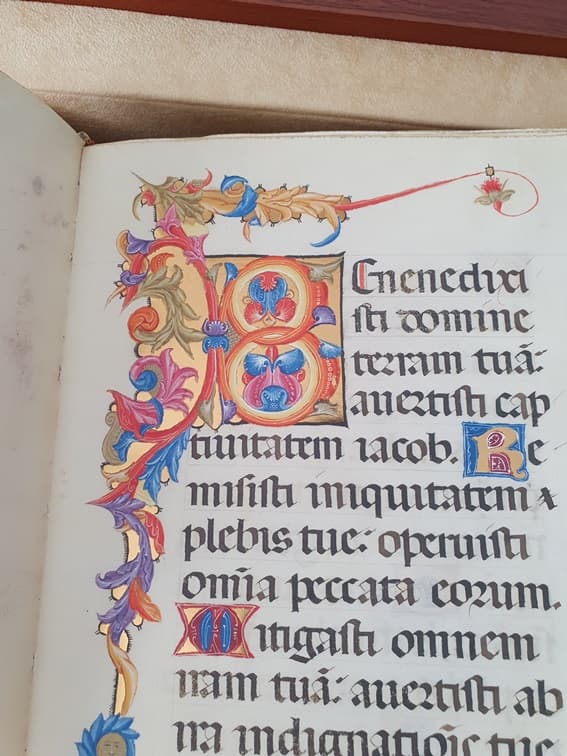 BEnenedixi
sti domine
terram tuã:
auertisti cap
tiuitatem iacob. Re
misisti iniquitatem
plebis tue: operuisti
om̃ia peccata eorum.
Mitigasti omnem
iram tuã: auertisti ab
ira indignatiõis tue